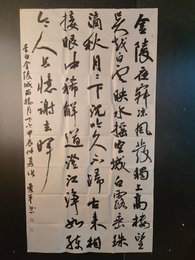 金陵夜寂凉風發獨上高樓望
吴越白雲映水摇空城白露垂珠
滴秋月々下沉吟久不歸古来相
接眼中稀解道澄江净如練
令人長憶謝玄暉
李白金陵城西樓月下吟甲辰仲夏